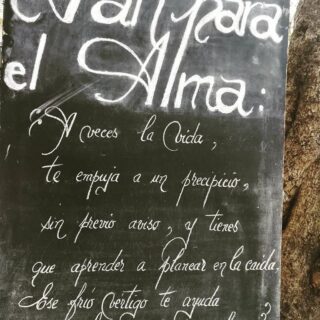 Pan para
el Alma:
"A veces la vida,
te empuja a un precipicio,
sin previo aviso, y tienes
que aprender a planear en la caída.
Ese frío vértigo te ayuda